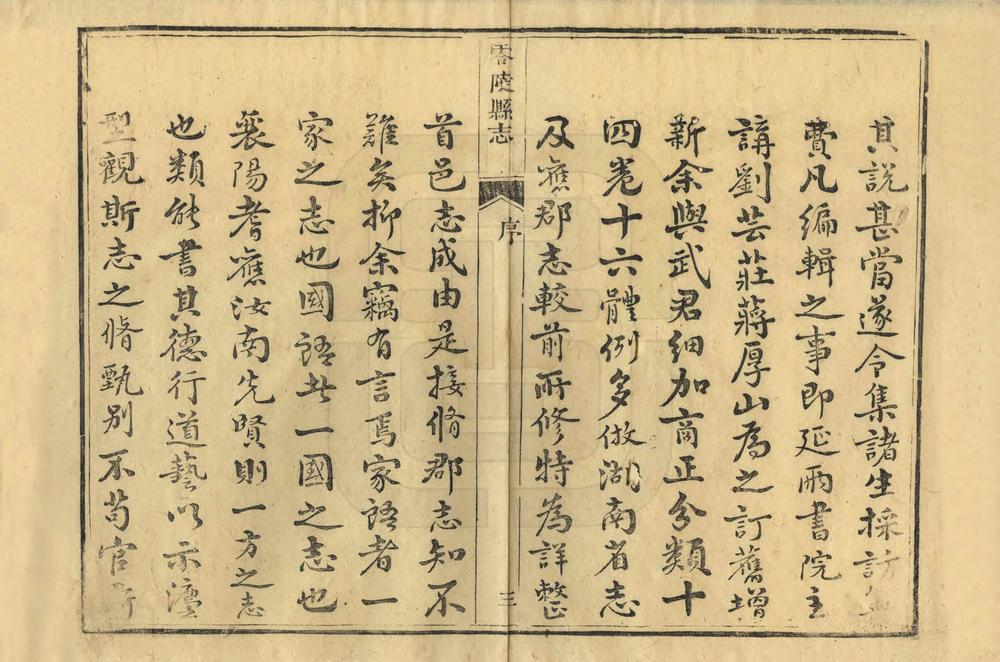 其說甚當遂令集諸生採訪
費凡編輯之事即延兩書院主
講劉芸莊蔣厚山為之訂舊增
新余與武君細加商正分類十
四卷十六體例多倣湖南省志
及舊郡志較前所修特為詳整
零陵縣志
序
三
首邑志成由是接脩郡志知不
難矣抑余竊有言焉家語者一
家之志也國語者一國之志也
襄陽耆舊汝南先賢則一方之志
也類能書其德行道藝以示
型觀斯志之脩甄別不苟官